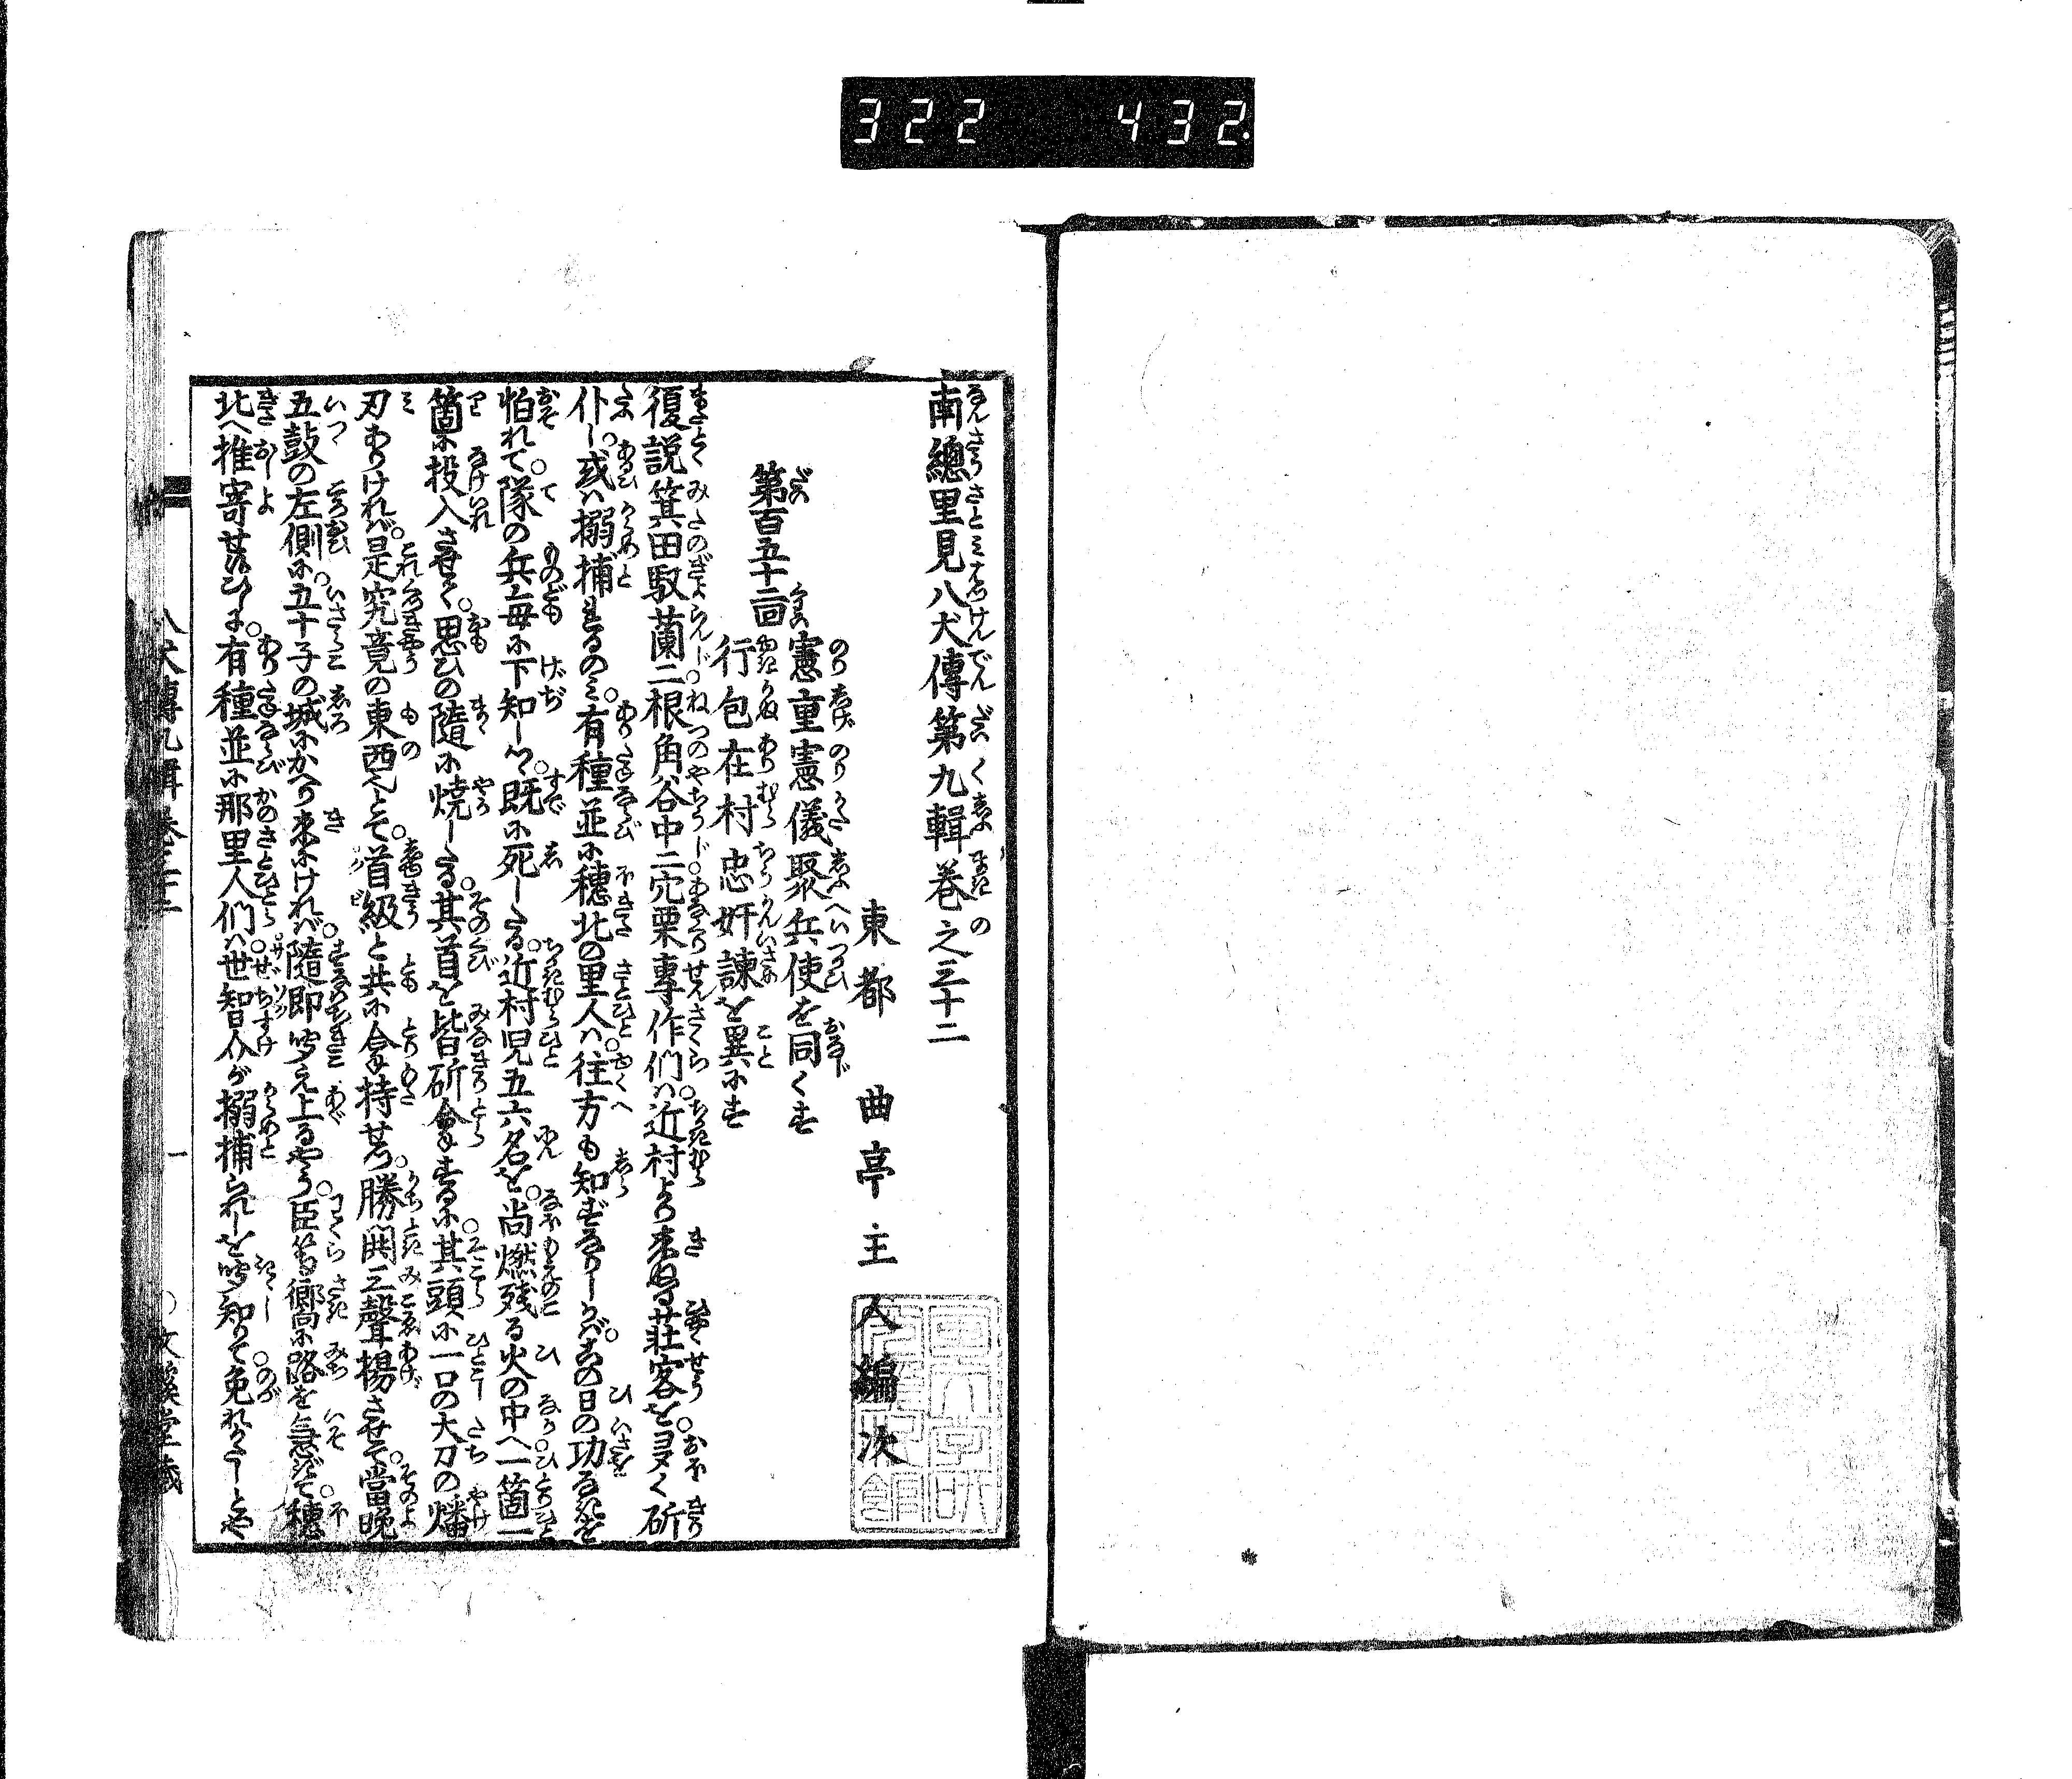 322 432.
南總里見八犬傳第九輯卷之三十二
東都 曲亭主人編次
第百五十二回 憲重憲儀聚兵使を同くす
行包在村忠奸諫を異にす
復説箕田馭蘭二根角谷中二穴栗專作們ハ近村より來ぬる莊客を夥く斫
仆し或ハ搦捕るのミ有種並に穗北の里人ハ往方も知ずなりしかバ這日の功なきを
怕れて隊の兵毎に下知しつゝ既に死したる近村児五六名を尚燃残る火の中へ一箇一
箇に投入させて思ひの隨に燒したる其首を皆斫拿するに其頭に一口の大刀の燔
刃ありけれバ是究竟の東西也とて首級と共に拿持せつ勝鬨三聲揚させて當晩
五鼓の左側に五十子の城にかへり來にけれバ隨即聞え上るやう臣等嚮に路を急ぎて穗
北へ推寄せ候ひしに有種並に那里人們ハ世智介が搦捕られしを聞知りて免れ